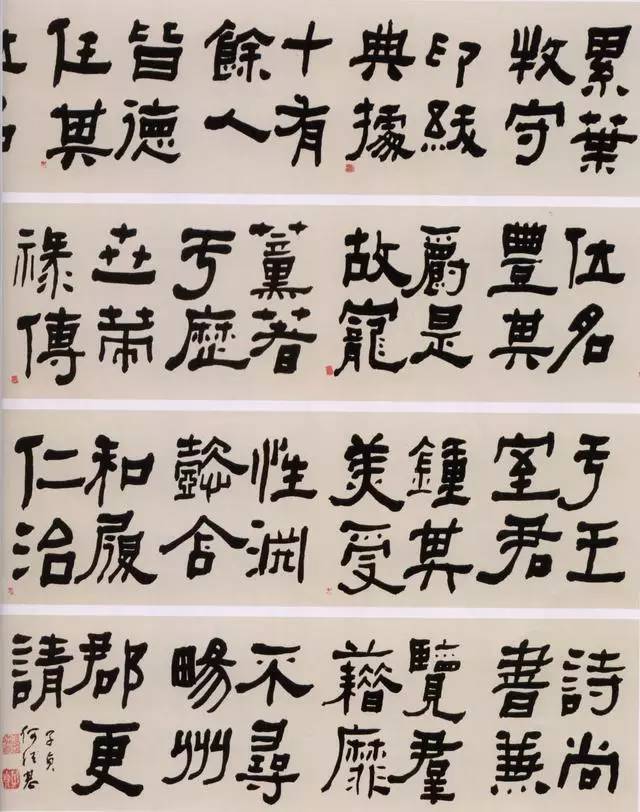 累葉
牧守
印紱
典據
十有
餘人
皆德
任其
位名
豐其
爵是
故寵
薰著
于歷
世策
祿傳
于王
室君
鍾其
美受
性渊
懿含
和履
仁治
詩尚
書兼
覽羣
藉靡
不尋
暢州
郡更
請
子貞
何紹基